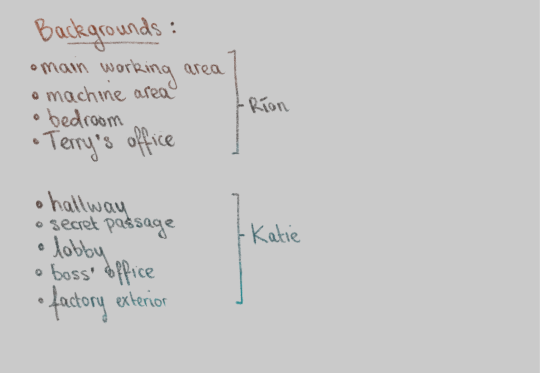 Backgrounds:
• main working area
• machine area
• bedroom
• Terry's office
Rían
• hallway
• secret passage
• lobby
• boss' office
• factory exterior
Katie